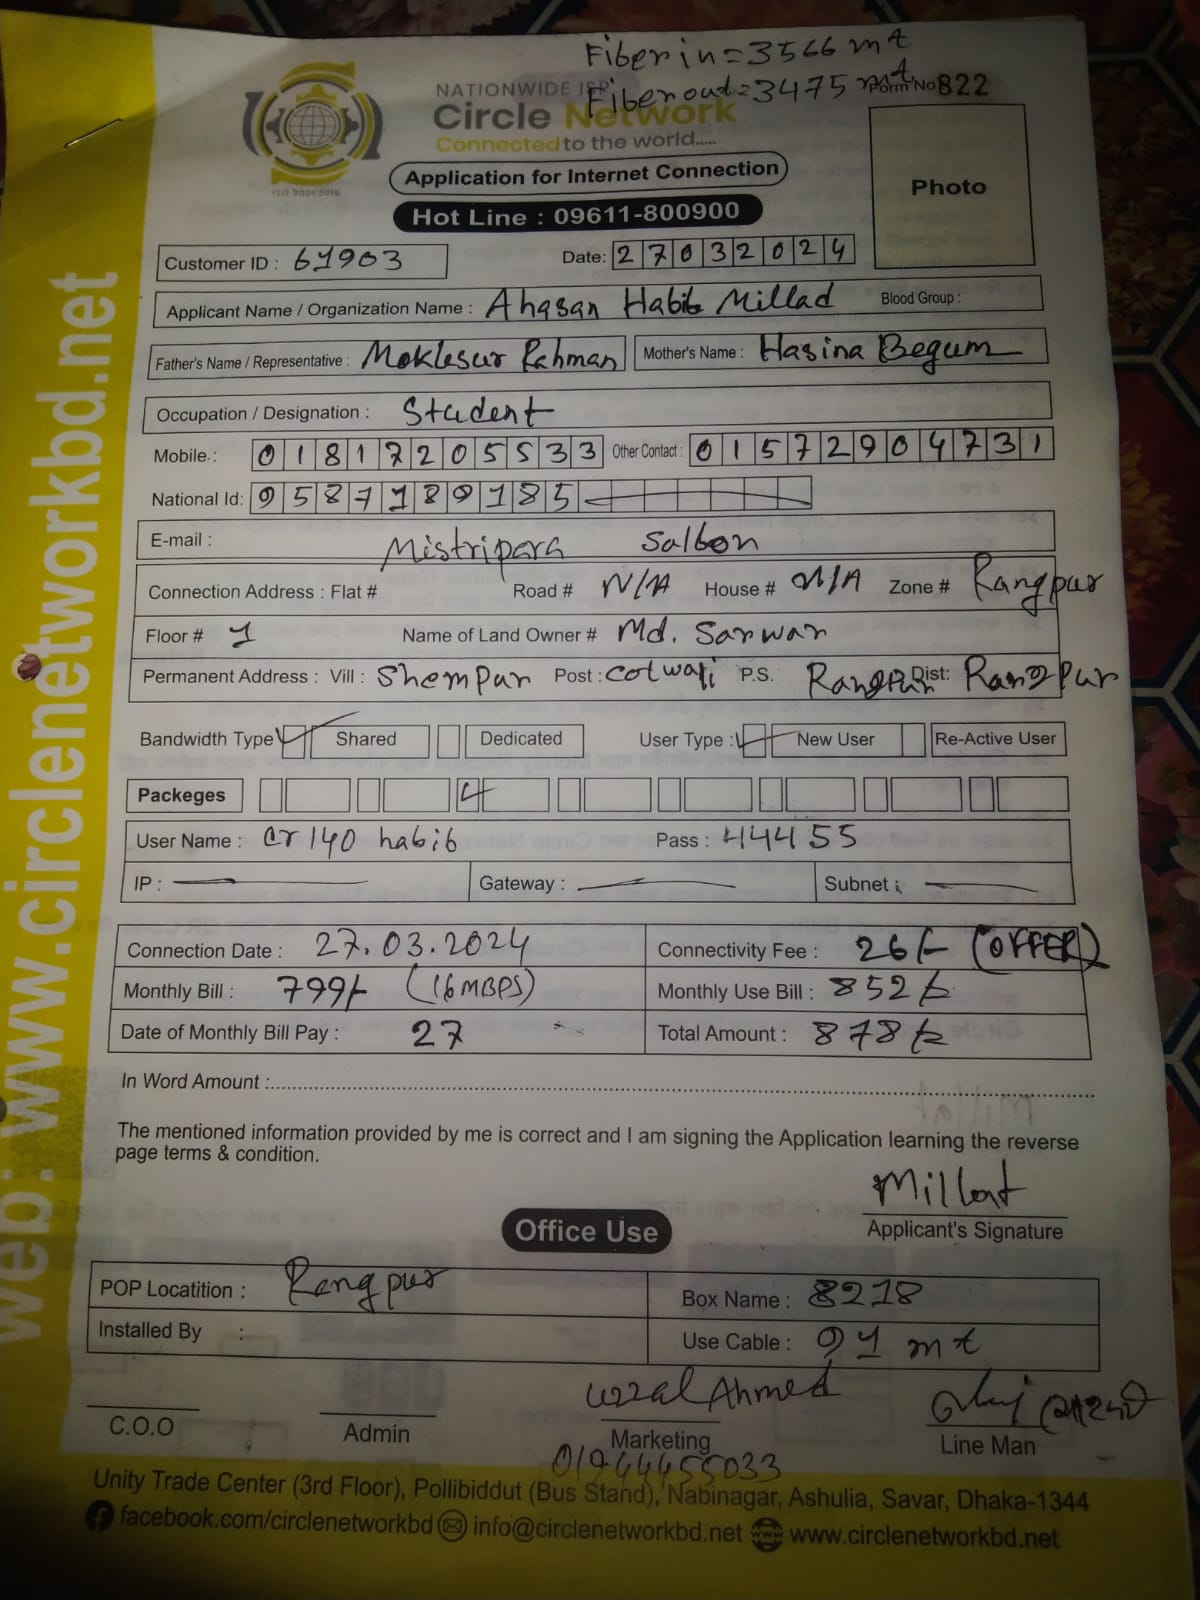 Fiber in = 3566 mt
Fiber out = 3475 mt
Form No 822
NATIONWIDE ISP
Circle Network
Connected to the world.....
ISO 9001:2015
Application for Internet Connection
Hot Line : 09611-800900
Photo
Customer ID : 61903 Date: 27032024
Applicant Name / Organization Name : Ahasan Habib Millad Blood Group :
Father's Name / Representative : Moklesur Rahman Mother's Name : Hasina Begum
Occupation / Designation : Student
Mobile : 01817205533 Other Contact : 01572904731
National Id: 9587189185
E-mail :
Mistripara Salbon
Connection Address : Flat # Road # N/A House # N/A Zone # Rangpur
Floor # 1 Name of Land Owner # Md. Sarwar
Permanent Address : Vill : Shempur Post : Cotwali P.S. Rangpur Dist: Rangpur
Bandwidth Type Shared Dedicated User Type : New User Re-Active User
Packeges
User Name : cr140 habib Pass : 444455
IP : Gateway : Subnet :
Connection Date : 27.03.2024 Connectivity Fee : 26/- (OFFER)
Monthly Bill : 799/- (16 MBPS) Monthly Use Bill : 852/-
Date of Monthly Bill Pay : 27 Total Amount : 878/-
In Word Amount :
The mentioned information provided by me is correct and I am signing the Application learning the reverse
page terms & condition.
Millat
Applicant's Signature
Office Use
POP Locatition : Rangpur Box Name : 8218
Installed By : Use Cable : 91 mt
Uzzal Ahmed
C.O.O Admin Marketing Line Man
01944455033
Unity Trade Center (3rd Floor), Pollibiddut (Bus Stand), Nabinagar, Ashulia, Savar, Dhaka-1344
facebook.com/circlenetworkbd info@circlenetworkbd.net www.circlenetworkbd.net
web: www.circlenetworkbd.net